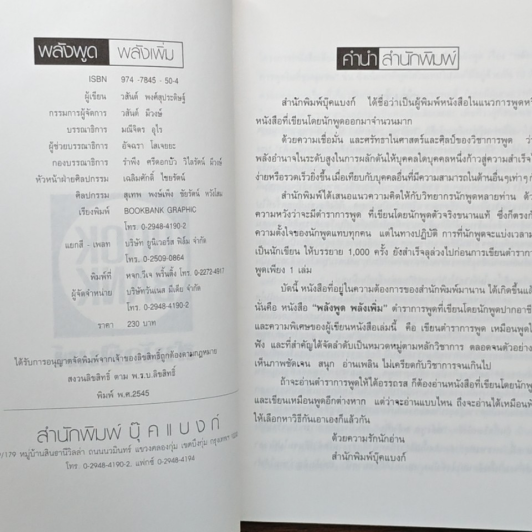 พลังพูด พลังเพิ่ม
ISBN 974 -7845 - 50-4
ผู้เขียน วสันต์ พงศ์สุประดิษฐ์
กรรมการผู้จัดการ วสันต์ มีวงษ์
บรรณาธิการ มณีจิตร อุไร
ผู้ช่วยบรรณาธิการ อัจฉรา โสเจยยะ
กองบรรณาธิการ รำพึง ศรีดอกบัว วิไลรัตน์ มีวงษ์
หัวหน้าฝ่ายศิลปกรรม เฉลิมศักดิ์ ไชยรัตน์
ศิลปกรรม สุเทพ พงษ์เพ็ง ชัยรัตน์
เรียงพิมพ์ BOOKBANK GRAPHIC
โทร. 0-2948-4190-2
แยกสี - เพลท บริษัท ยูนิเวอร์ส ฟิล์ม จำกัด
โทร.. 0-2509-0864
พิมพ์ที่ หจก.วีเจ พริ้นติ้ง โทร. 0-2272-4917
ผู้จัดจำหน่าย บริษัทวันเนส มีเดีย จำกัด
โทร.. 0-2948-4190-2
ราคา 230 บาท
ได้รับการอนุญาตจัดพิมพ์จากเจ้าของลิขสิทธิ์ถูกต้องตามกฎหมาย
สงวนลิขสิทธิ์ ตาม พ.ร.บ.ลิขสิทธิ์
พิมพ์ พ.ศ.2545
สำนักพิมพ์ บุ๊คแบงก์
/179 หมู่บ้านสินธานีวิลล่า ถนนนวมินทร์ แขวงคลองกุ่ม เขตบึงกุ่ม
โทร. 0-2948-4190-2, แฟกซ์ 0-2948-4194
คำนำ สำนักพิมพ์
สำนักพิมพ์บุ๊คแบงก์ ได้ชื่อว่าเป็นผู้พิมพ์หนังสือในแนวการพูดท
หนังสือที่เขียนโดยนักพูดออกมาจำนวนมาก
ด้วยความเชื่อมั่น และศรัทธาในศาสตร์และศิลป์ของวิชาการพูด ว่
พลังอำนาจในระดับสูงในการผลักดันให้บุคคลใดบุคคลหนึ่งก้าวสู่ความสำเร็จ
ง่ายหรือรวดเร็วยิ่งขึ้น เมื่อเทียบกับบุคคลอื่นที่มีความสามารถในด้านอื่นๆเท่าๆ
สำนักพิมพ์ได้เสนอแนวความคิดให้กับวิทยากรนักพูดหลายท่าน ด้ว
ความหวังว่าจะมีตำราการพูด ที่เขียนโดยนักพูดตัวจริงขนานแท้ ซึ่งก็ตรงกั
ความตั้งใจของนักพูดแทบทุกคน แต่ในทางปฏิบัติ การที่นักพูดจะแบ่งเวลาม
เป็นนักเขียน ให้บรรยาย 1,000 ครั้ง ยังสำเร็จลุล่วงไปก่อนการเขียนตำราการ
พูดเพียง 1 เล่ม
บัดนี้ หนังสือที่อยู่ในความต้องการของสำนักพิมพ์มานาน ได้เกิดขึ้นแล้
นั่นคือ หนังสือ "พลังพูด พลังเพิ่ม" ตำราการพูดที่เขียนโดยนักพูดปากอาชี
และความพิเศษของผู้เขียนหนังสือเล่มนี้ คือ เขียนตำราการพูด เหมือนพูดใ
ฟัง และที่สำคัญได้จัดลำดับเป็นหมวดหมู่ตามหลักวิชาการ ตลอดจนตัวอย่าง
เห็นภาพชัดเจน สนุก อ่านเพลิน ไม่เครียดกับวิชาการจนเกินไป
ถ้าจะอ่านตำราการพูดให้ได้อรรถรส ก็ต้องอ่านหนังสือที่เขียนโดยนักพู
และเขียนเหมือนพูดอีกต่างหาก แต่ว่าจะอ่านแบบไหน ถึงจะอ่านได้เหมือนพู
ให้เลือกหาวิธีกันเอาเองก็แล้วกัน
ด้วยความรักนักอ่าน
สำนักพิมพ์บุ๊คแบงก์